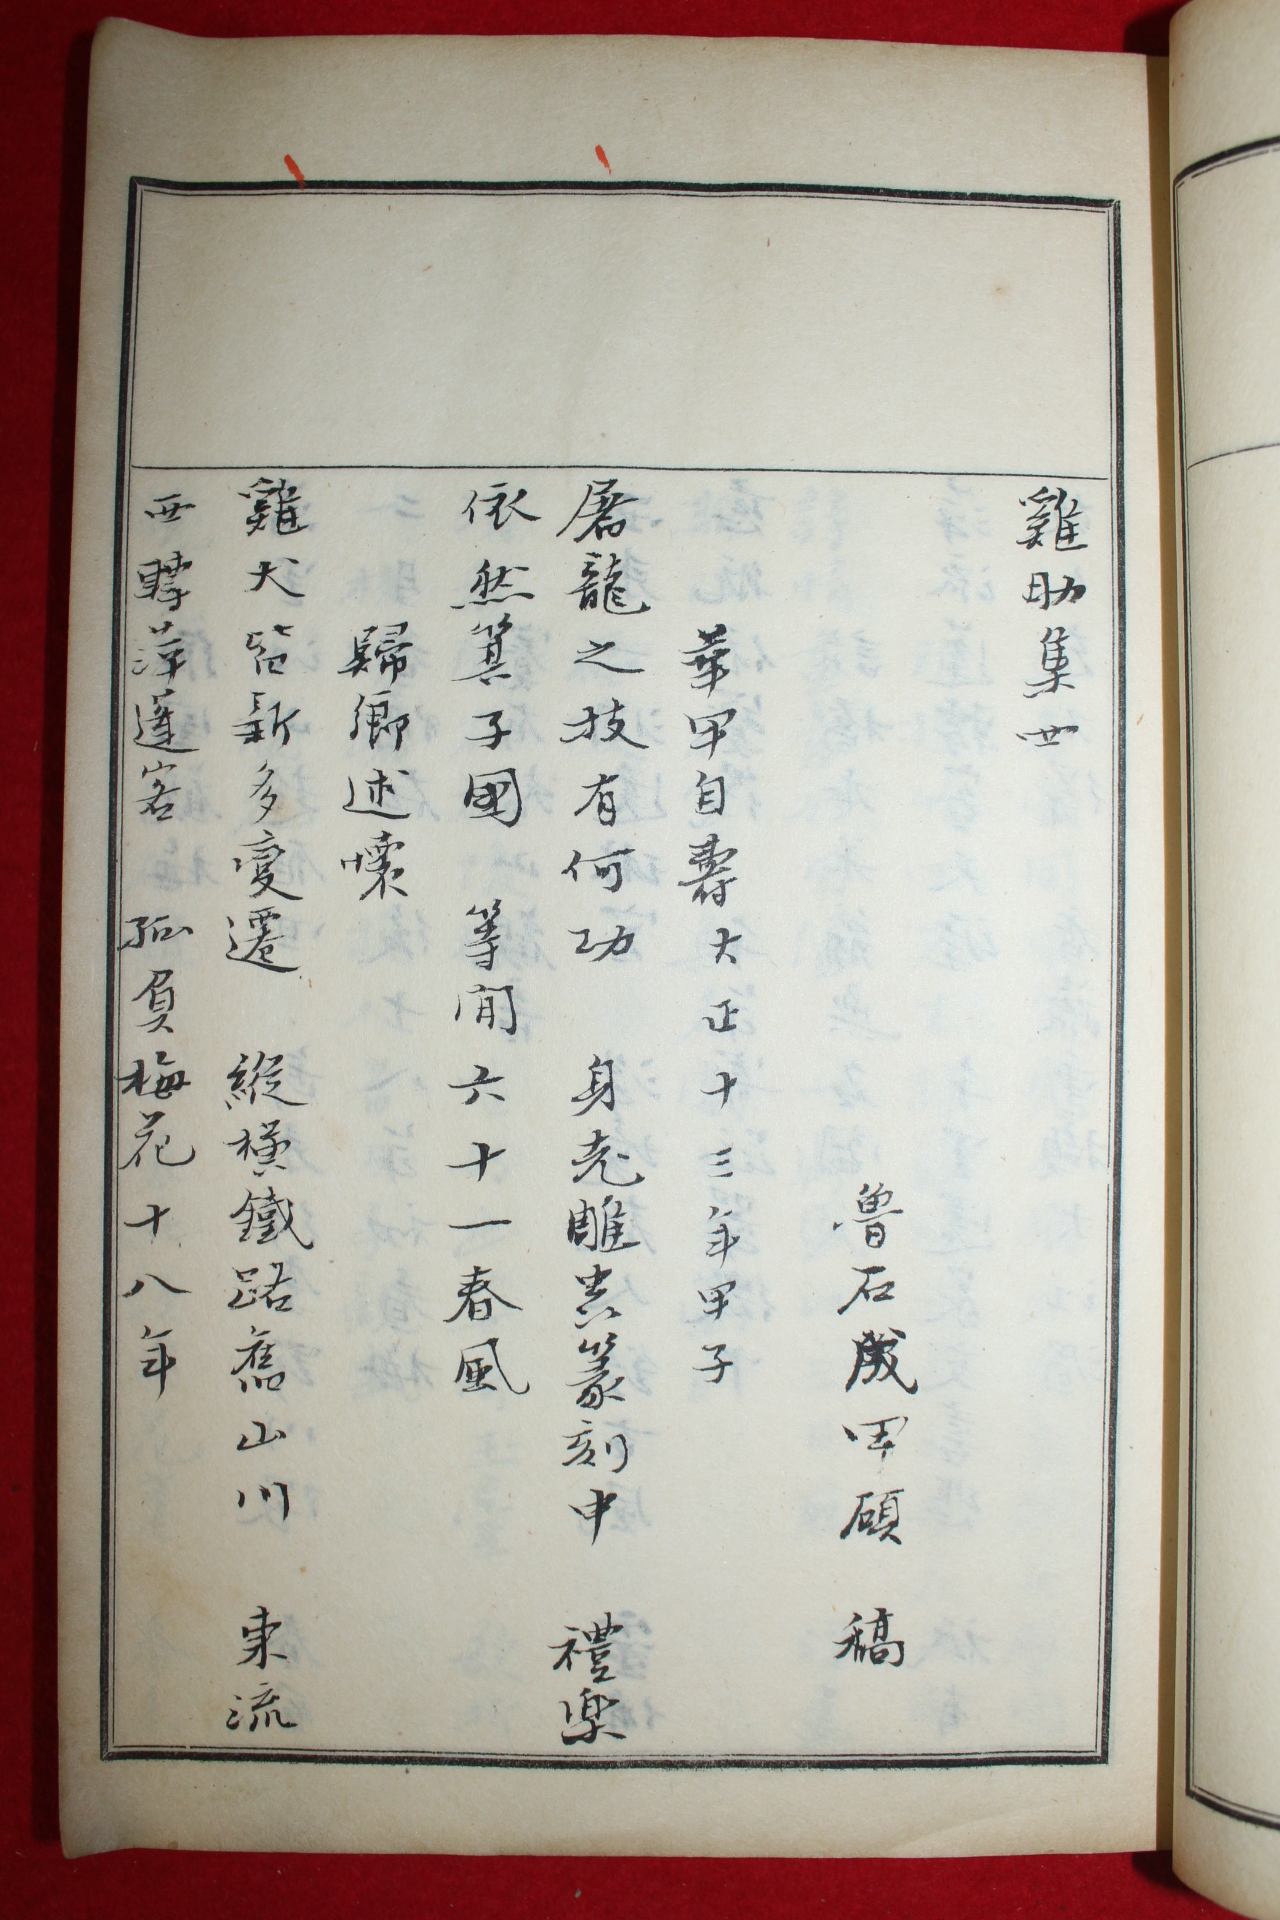 雞肋集 卌
魯石成甲碩 稿
華甲自壽 大正十三年甲子
屠龍之技有何功 身老雕蟲篆刻中 禮樂
依然箕子國 等閒六十一春風
歸鄉述懷
雞犬皆新多變遷 縱橫鐵路舊山川 東流
西轉萍蓬客 孤負梅花十八年